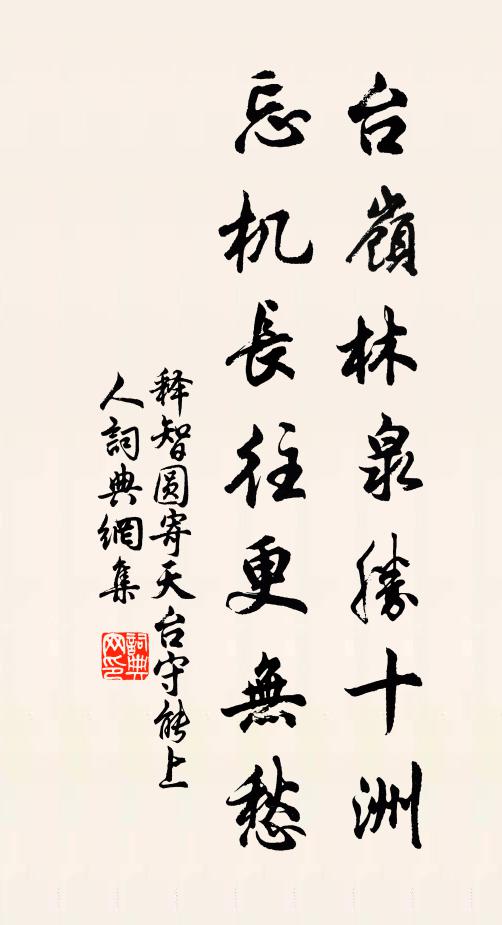 台嶺林泉勝十洲
忘机長往更無愁
释智圆寄天台守能上
人詞典網集
詞典网印